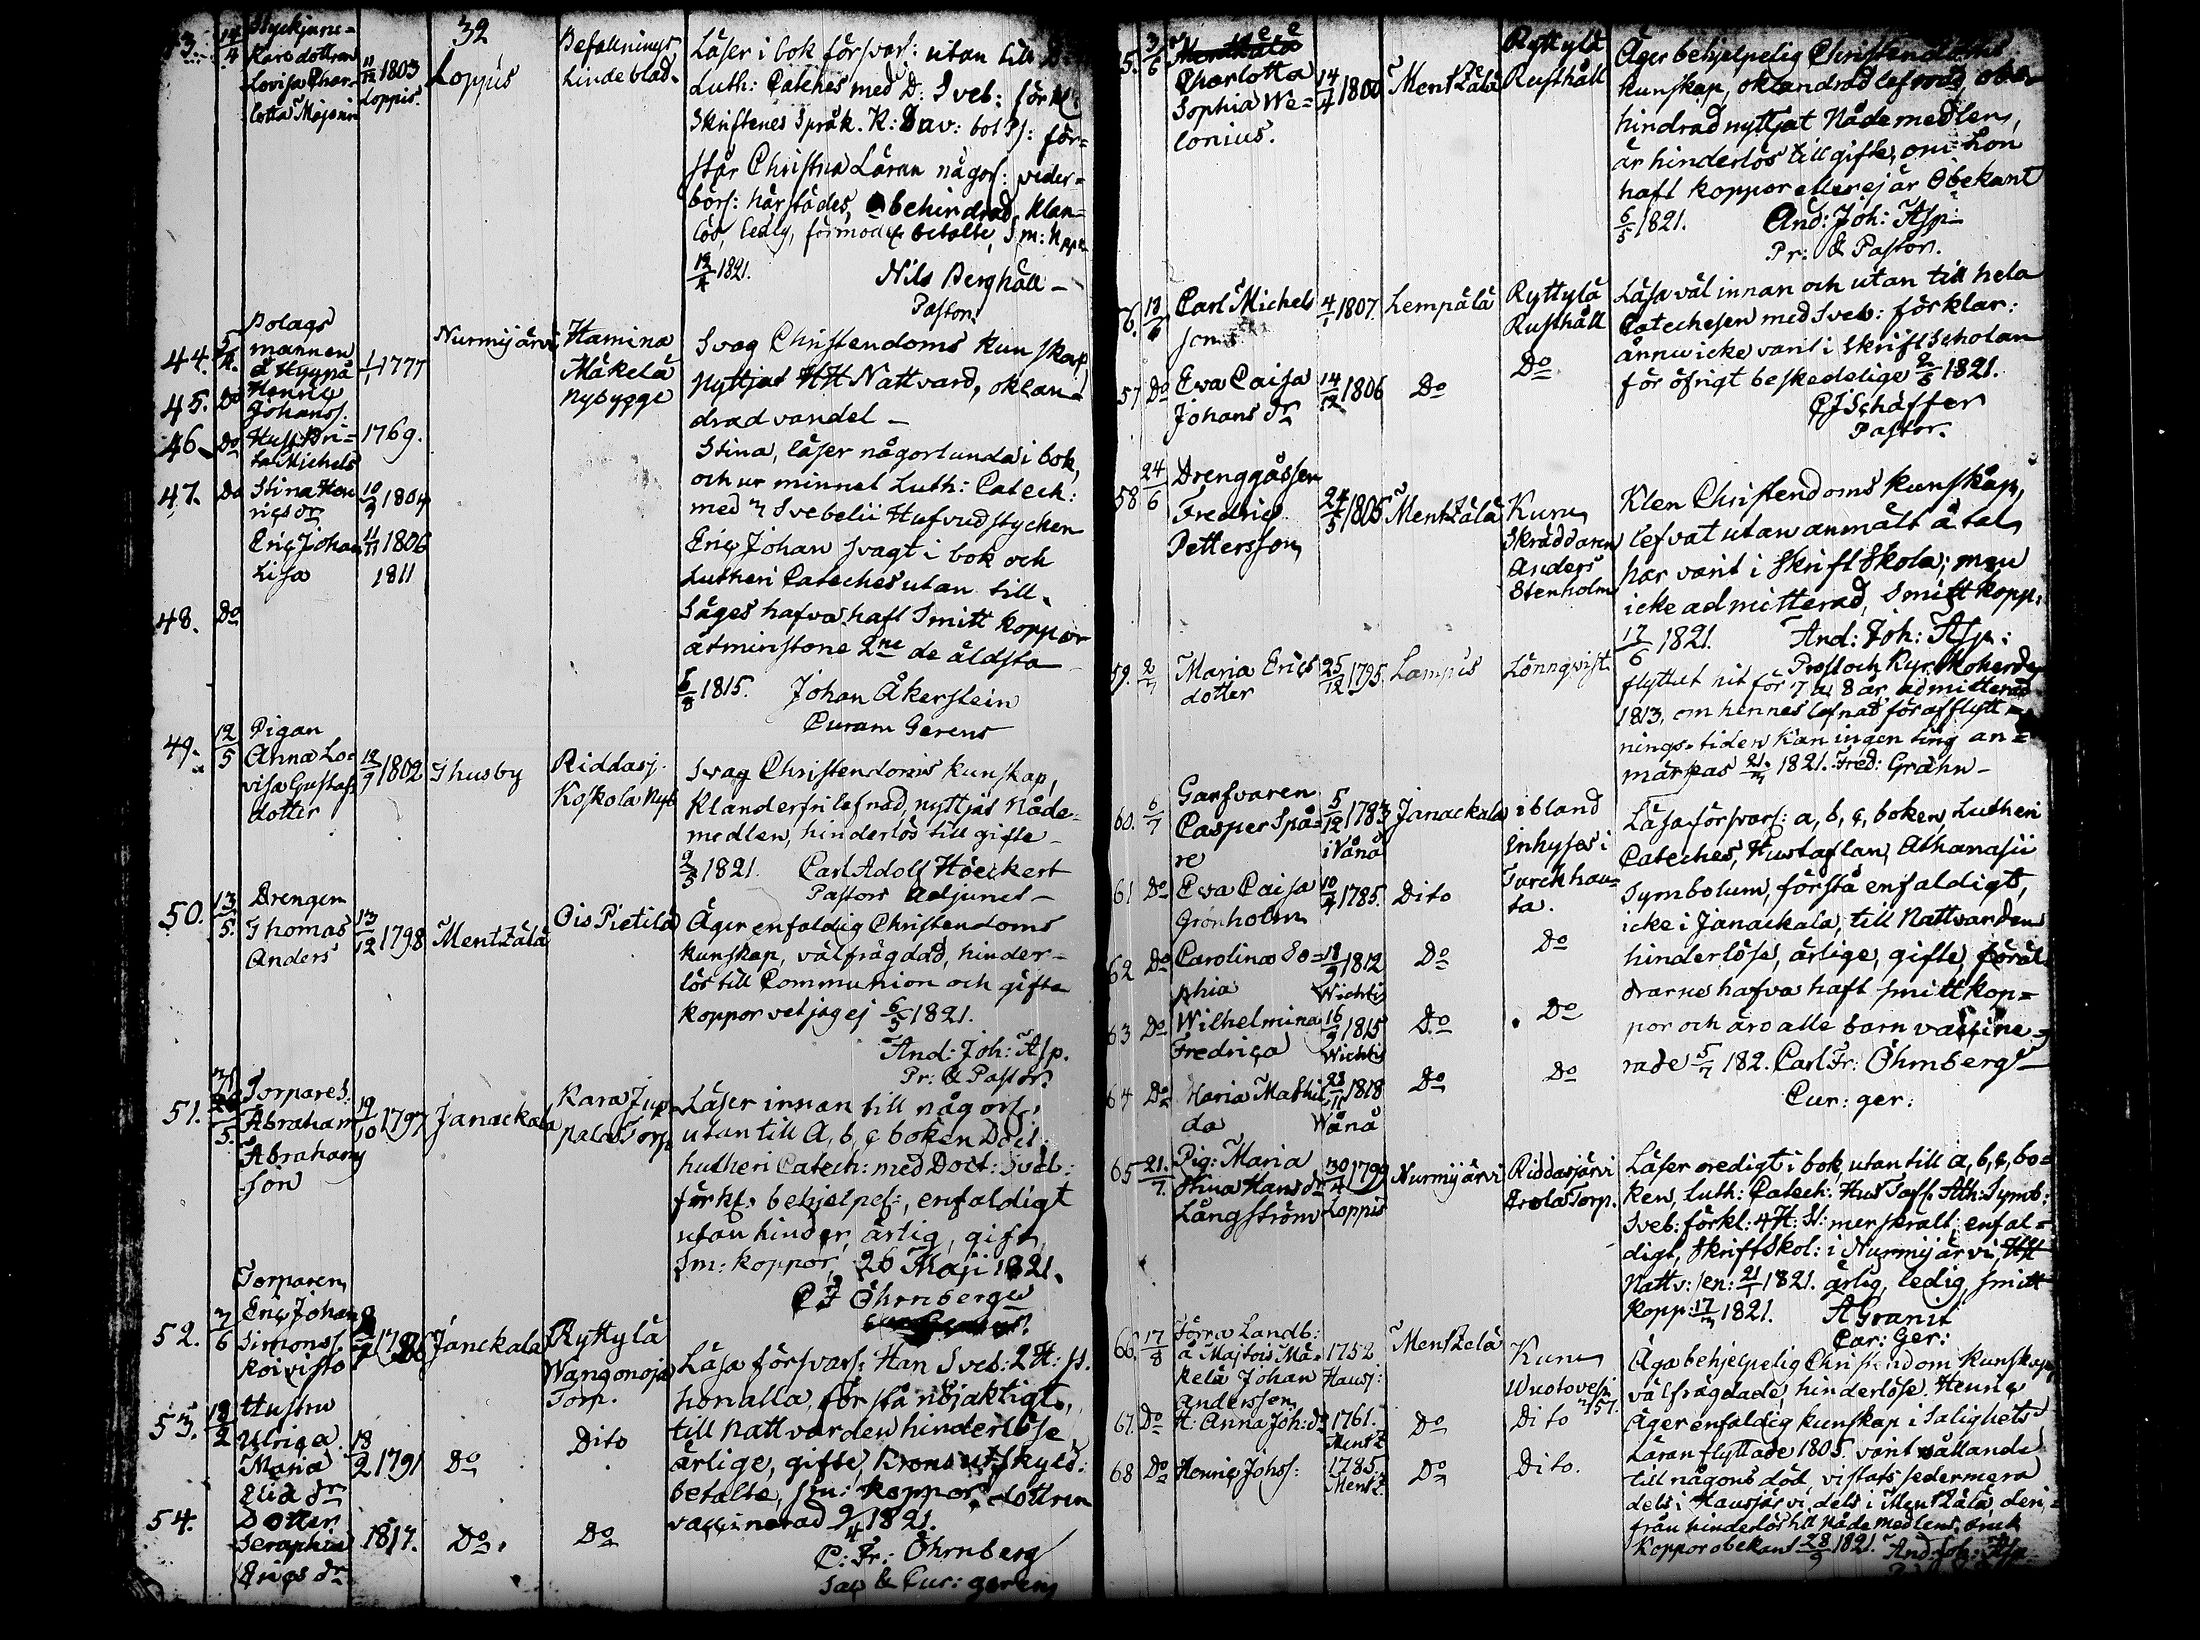 32
Loppis
Befallnings
Lindeblad.
Läser i bok försvarl: utan till
Luth: Cateches med D: Sveb: förkl:
Skriftenes Språk. K: Dav: bot Ps: för=
står Christna Läran någorl: veder=
börl: härstädes, obehindrad, klan=
lös, ledig,
19/4 1821. Nils Berghäll
Pastor.
14/4
dottren
Lovisa Char=
lotta
11/12 1803
Loppis.
44. 5/5 Bolags
mannen
1/1 1777
Nurmijärvi
Hamina
Mäkelä
nybygge
45. Do Henric
Johanss.
46. Do Hust. Bri=
ta Michels
1769.
47. Do Stina Hen
ricsdr
10/9 1804
Eric Johan 11/11 1806
Lisa 1811
48. Do
Svag Christendoms kunskap
Nyttjat HH Nattvard, oklan=
drad vandel –
Stina, läser någorlunda i bok,
och ur minnet Luth: Catech:
med Svebelii Hufvudstycken
Eric Johan svagt i bok och
Lutheri Cateches utan till.
Säges hafva haft Smitt koppor
åtminstone 2ne de äldsta
5/8 1815. Johan Åkerstein
Curam Gerens
49. 12/5 Pigan
Anna Lo=
visa Gustafs
dotter
12/9 1802
Thusby
Riddasj.
Koskola Nyb
Svag Christendoms kunskap,
Klanderfri lefnad, nyttjat Nåde=
medlen, hinderlös till gifte –
9/5 1821. Carl Adolf Höckert
Pastors Adjunct –
50. 13/5. Drengen
Thomas
Anders
13/12 1798
Mentzälä
Ois Pietilä
Äger enfaldig Christendoms
kunskap, välfrägdad, hinder=
lös till Communion och gifte
koppor vet jag ej 6/5 1821.
And: Joh: Asp.
Pr: & Pastor.
51. Torpares.
Abraham
Abrahams
son
19/10 1797
Janackala
Kara
pala Torp
Läser innan till någorl:
utan till A, b, c boken Doct:
Lutheri Catech: med Doct: Sveb:
förkl: behjelpel:, enfaldigt
utan hinder, ärlig, gift,
Sm: koppor, 26 Maji 1821.
C F Öhrnberg
52. 3/6 Torparen
Eric Johan
Simonss.
Koivisto
Janckala
Ryttylä
Wangonoja
Torp.
53. Hustru
Ulrica
Maria
dr
18/2 1791
Do
Dito
54. Dotter
Seraphia
Erics dr
1817.
Do.
Do
Läsa försvarl: Han Sveb: 2 H: st.
hon alla, förstå nöjaktigt,
till nattvarden hinderlöse,
ärlige, gifte, Kronoutskyld:
betalte, sm: koppor, dottren
vaccinerad 9/4 1821.
C: Fr: Öhrnberg
Sac & Cur: gerens
55. 3/6 Charlotta
Sophia We=
lonius.
14/4 1800
Mentzälä
Ryttylä
Rusthåll
Äger behjelpelig Christendoms
kunskap, oklandrad lefnad, obe=
hindrad nyttjat Nådemedlen,
är hinderlös till gifte, om hon
haft koppor eller ej är Obekant
6/5 1821. And: Joh: Asp
Pr: & Pastor.
56. 18/6 Carl Michels
son
4/1 1807.
Lempälä
Ryttylä
Rusthåll
57 Do Eva Caisa
Johans dr
14/12 1806
Do
Do
Läsa väl innan och utan till hela
Catechesen med Sveb: förklar:
ännu icke varit i Skriftscholan
för öfrigt beskedelige 2/5 1821.
C J Schäffer
Pastor.
58 24/6 Drenggåssen
Fredric
Pettersson
24/5 1805
Mentzälä
Kuru
Skräddaren
Anders
Stenholm
Klen Christendoms kunskap,
lefvat utan anmält åtal,
har varit i Skriftskola; men
icke admitterad, Smitt kopp:
17/6 1821. And: Joh: Asp:
Prost och Kyr: herde
59. 2/7 Maria Erics
dotter
25/12 1795
Lampis
Lönnqvist.
flyttat hit för 7 a 8 år, admitterad
1813, om hennes lefnad för afflytt=
nings-tiden kan ingen ting an=
märkas 1821. Fred: Grahn –
60. 6/7 Garfvaren
Casper Spå=
re
5/12 1783
i Vånå
Janackala
ibland
inhyses i
Turckhau=
ta.
61 Do Eva Caisa
Grönholm
10/4 1785.
Dito
62 Do Carolina So=
phia
18/9 1812
Wichtis
Do
Do
63 Do Wilhelmina
Fredrica
16/9 1815
Wichtis
Do
Do
64 Do Maria Mathil
da
23/11 1818
Wånå
Do
Do
Läsa försvarl: a, b, c, boken, Lutheri
Cateches, Hustaflan, Athanasii
Symbolum, förstå enfaldigt,
icke i Janackala, till Nattvarden
hinderlöse, ärlige, gifte, föräl=
drarne hafva haft smittkop=
por och äro alla barn vaccine=
rade 5/7 182. Carl Fr: Öhrnberg
Cur: ger:
65 21/7. Pig: Maria
Stina Hans dr
Långström
30/4 1799
Loppis
Nurmijärvi
Riddasjärvi
Arola Torp.
Läser redigt i bok, utan till a, b, c, bo=
ken, Luth: Catech: Hus Tafl: Ath: Symb:
Sveb: förkl: 4 H: St: enfal=
digt, Skriftskol: i Nurmijärvi,
Nattv: sen: 21/1 1821. ärlig, ledig, smitt
kopp: 17/7 1821. A Granit
Cur: Ger:
66. 17/8 Förra Landb:
å Majtois Mä=
kelä Johan
Andersson
1752
Hausj:
Mentzelä
Kuru
67. Do H: Anna Joh: dr
1761.
Mentz
Do
Dito
68 Do Henric Johss:
1785.
Mentz
Do
Dito.
Äga behjelpelig Christendoms kunskap,
välfrägdade, hinderlöse. Henric
äger enfaldig kunskap i Salighets
Läran flyttade 1805. varit vållande
till någons död, vistats sedermera
dels i Hausjärvi, dels i Mentzälä, deri=
från hinderlös till Nådemedlens bruk
Koppor obekant 28/9 1821. And: Joh: Asp